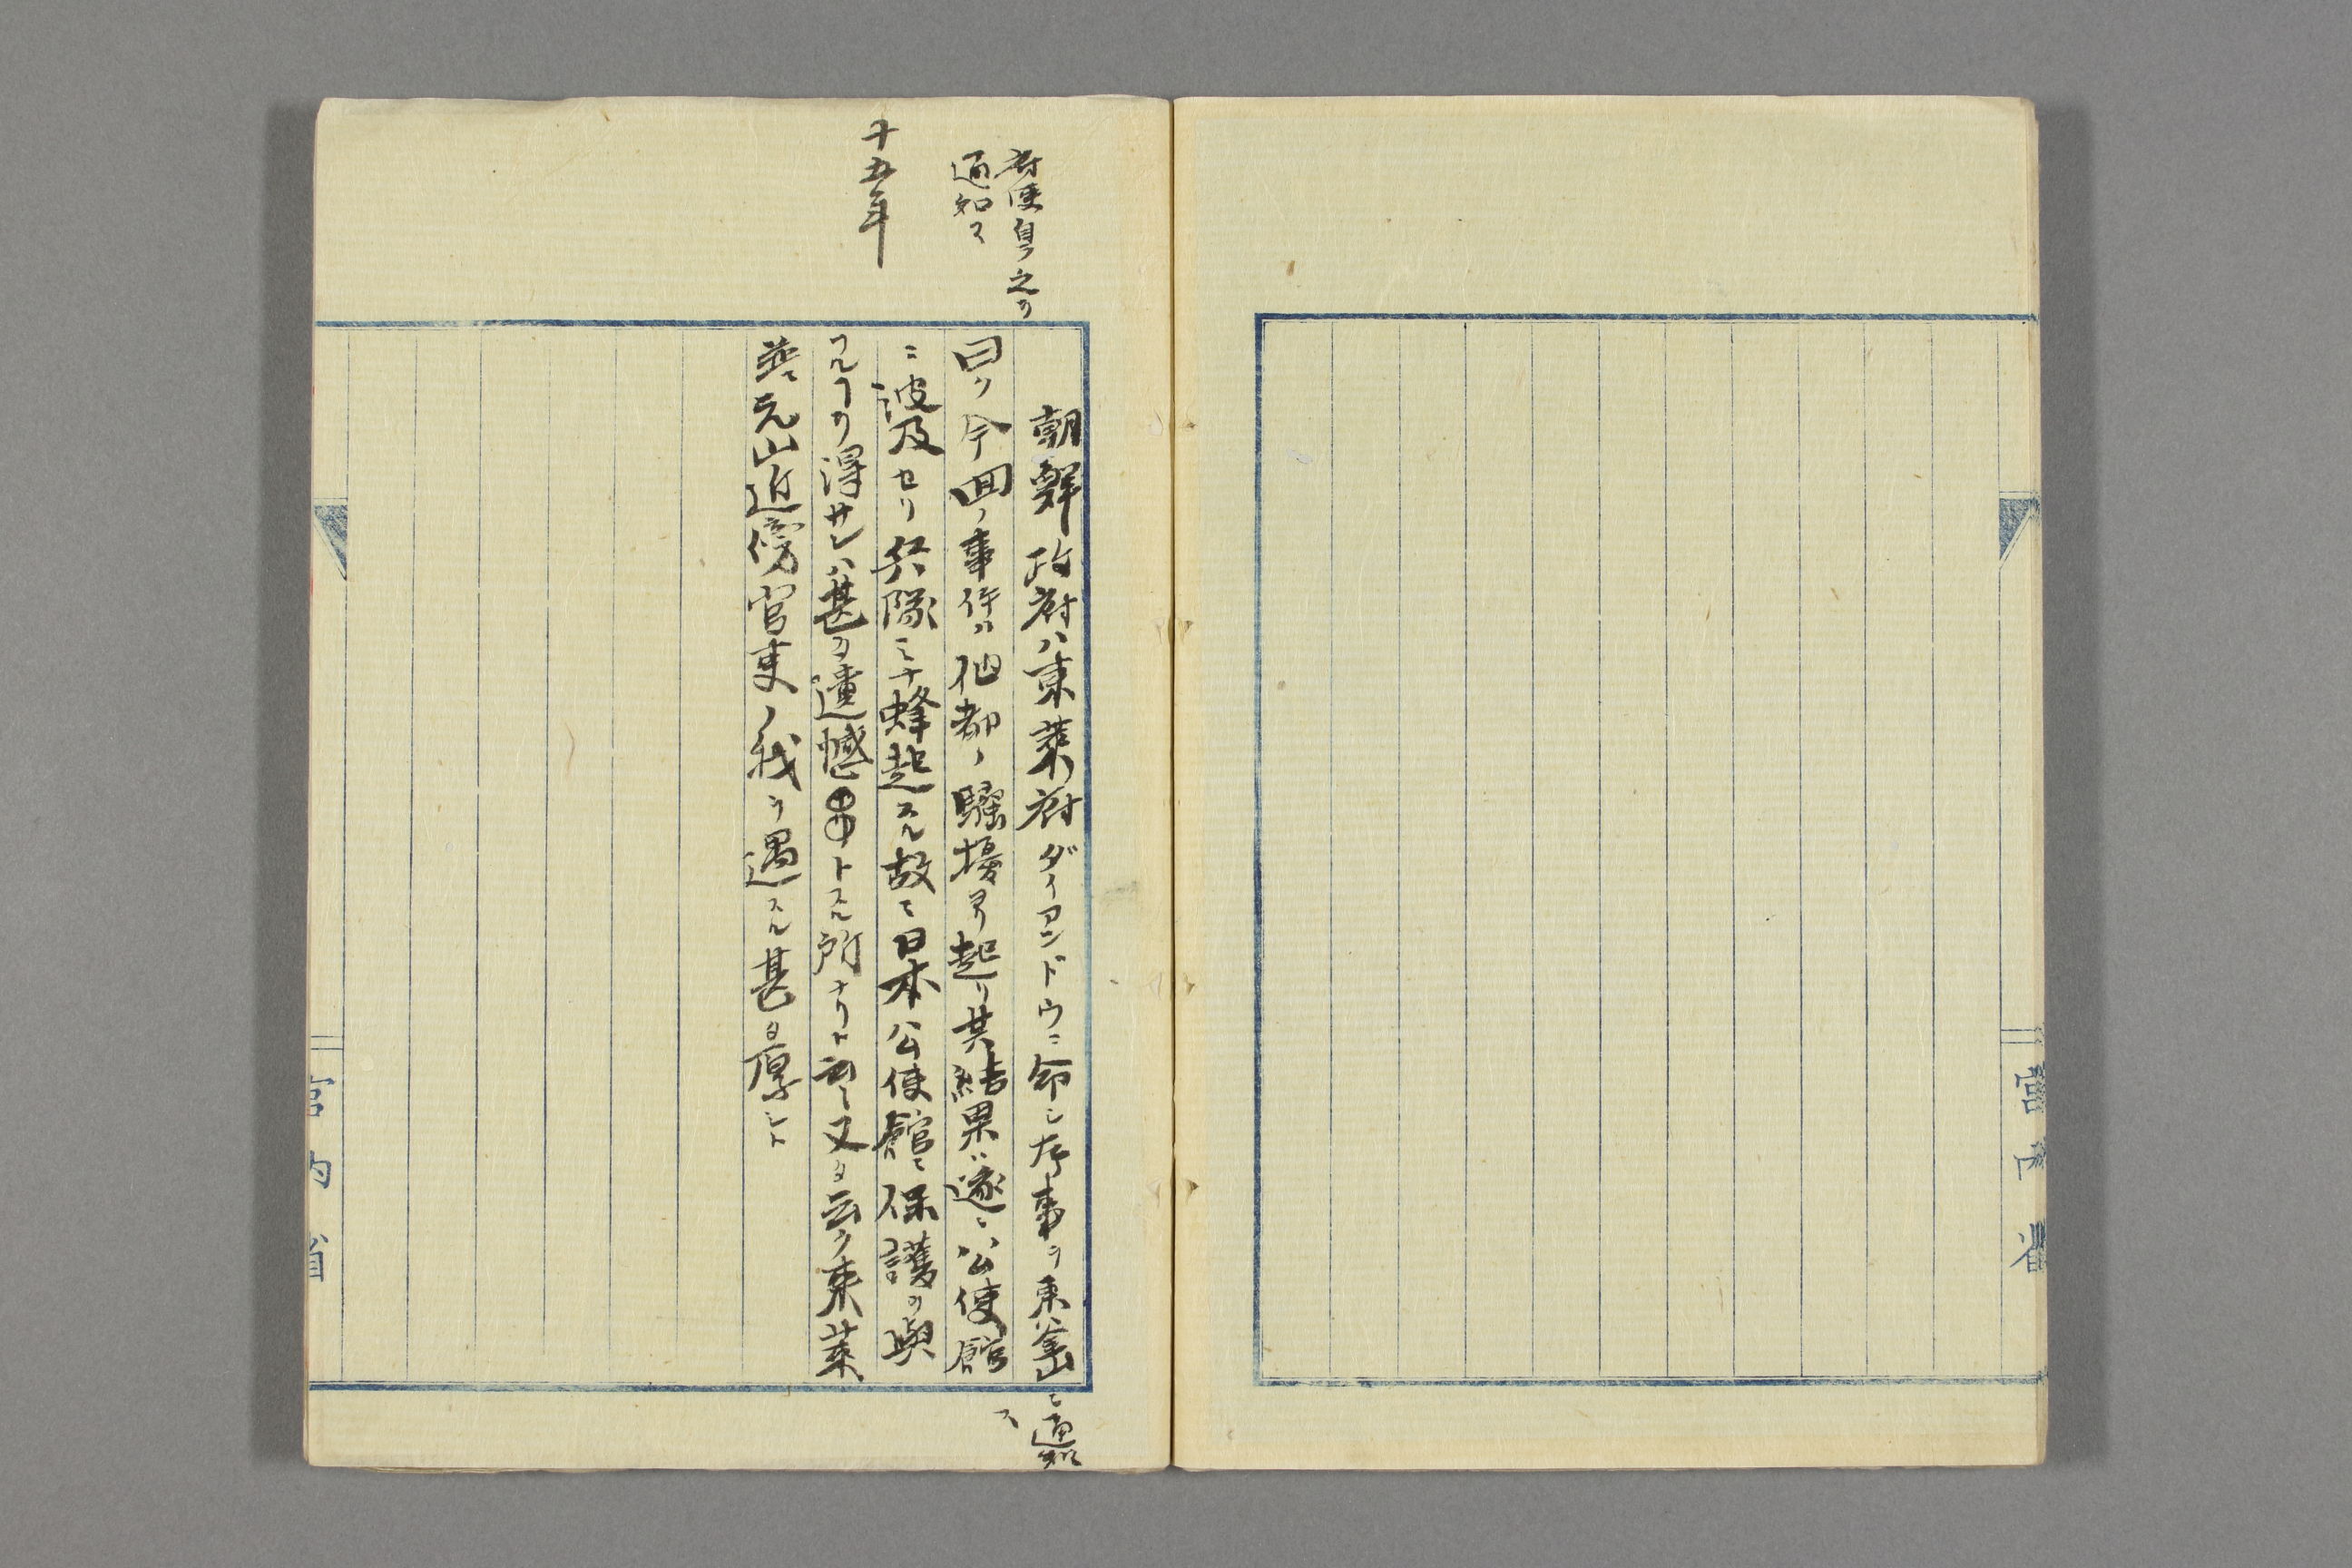 宮内省
府使自ラ之ヲ
通知ス
十五年
朝鮮政府ハ東萊府ダイアンドウニ命シ左事ヲ東釜山ニ通知
ス
曰ク今回ノ事件ハ他都ノ騒擾ヨリ起リ其結果遂ニ公使館
ニ波及セリ兵隊ミナ蜂起スル故ニ日本公使館ニ保護ヲ與
フルヿヲ得サレハ甚タ遺憾トスル所ナリト云々又タ云ク東萊
並ニ元山近傍官吏ノ我ヲ遇スル甚タ厚シト
宮内省